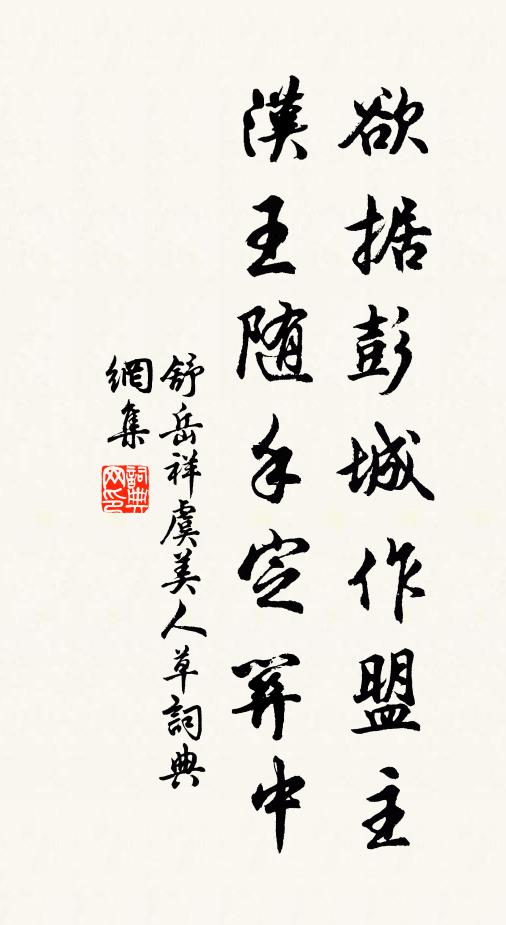 欲据彭城作盟主
漢王随手定關中
舒岳祥虞美人草詞典
網集
詞典網印